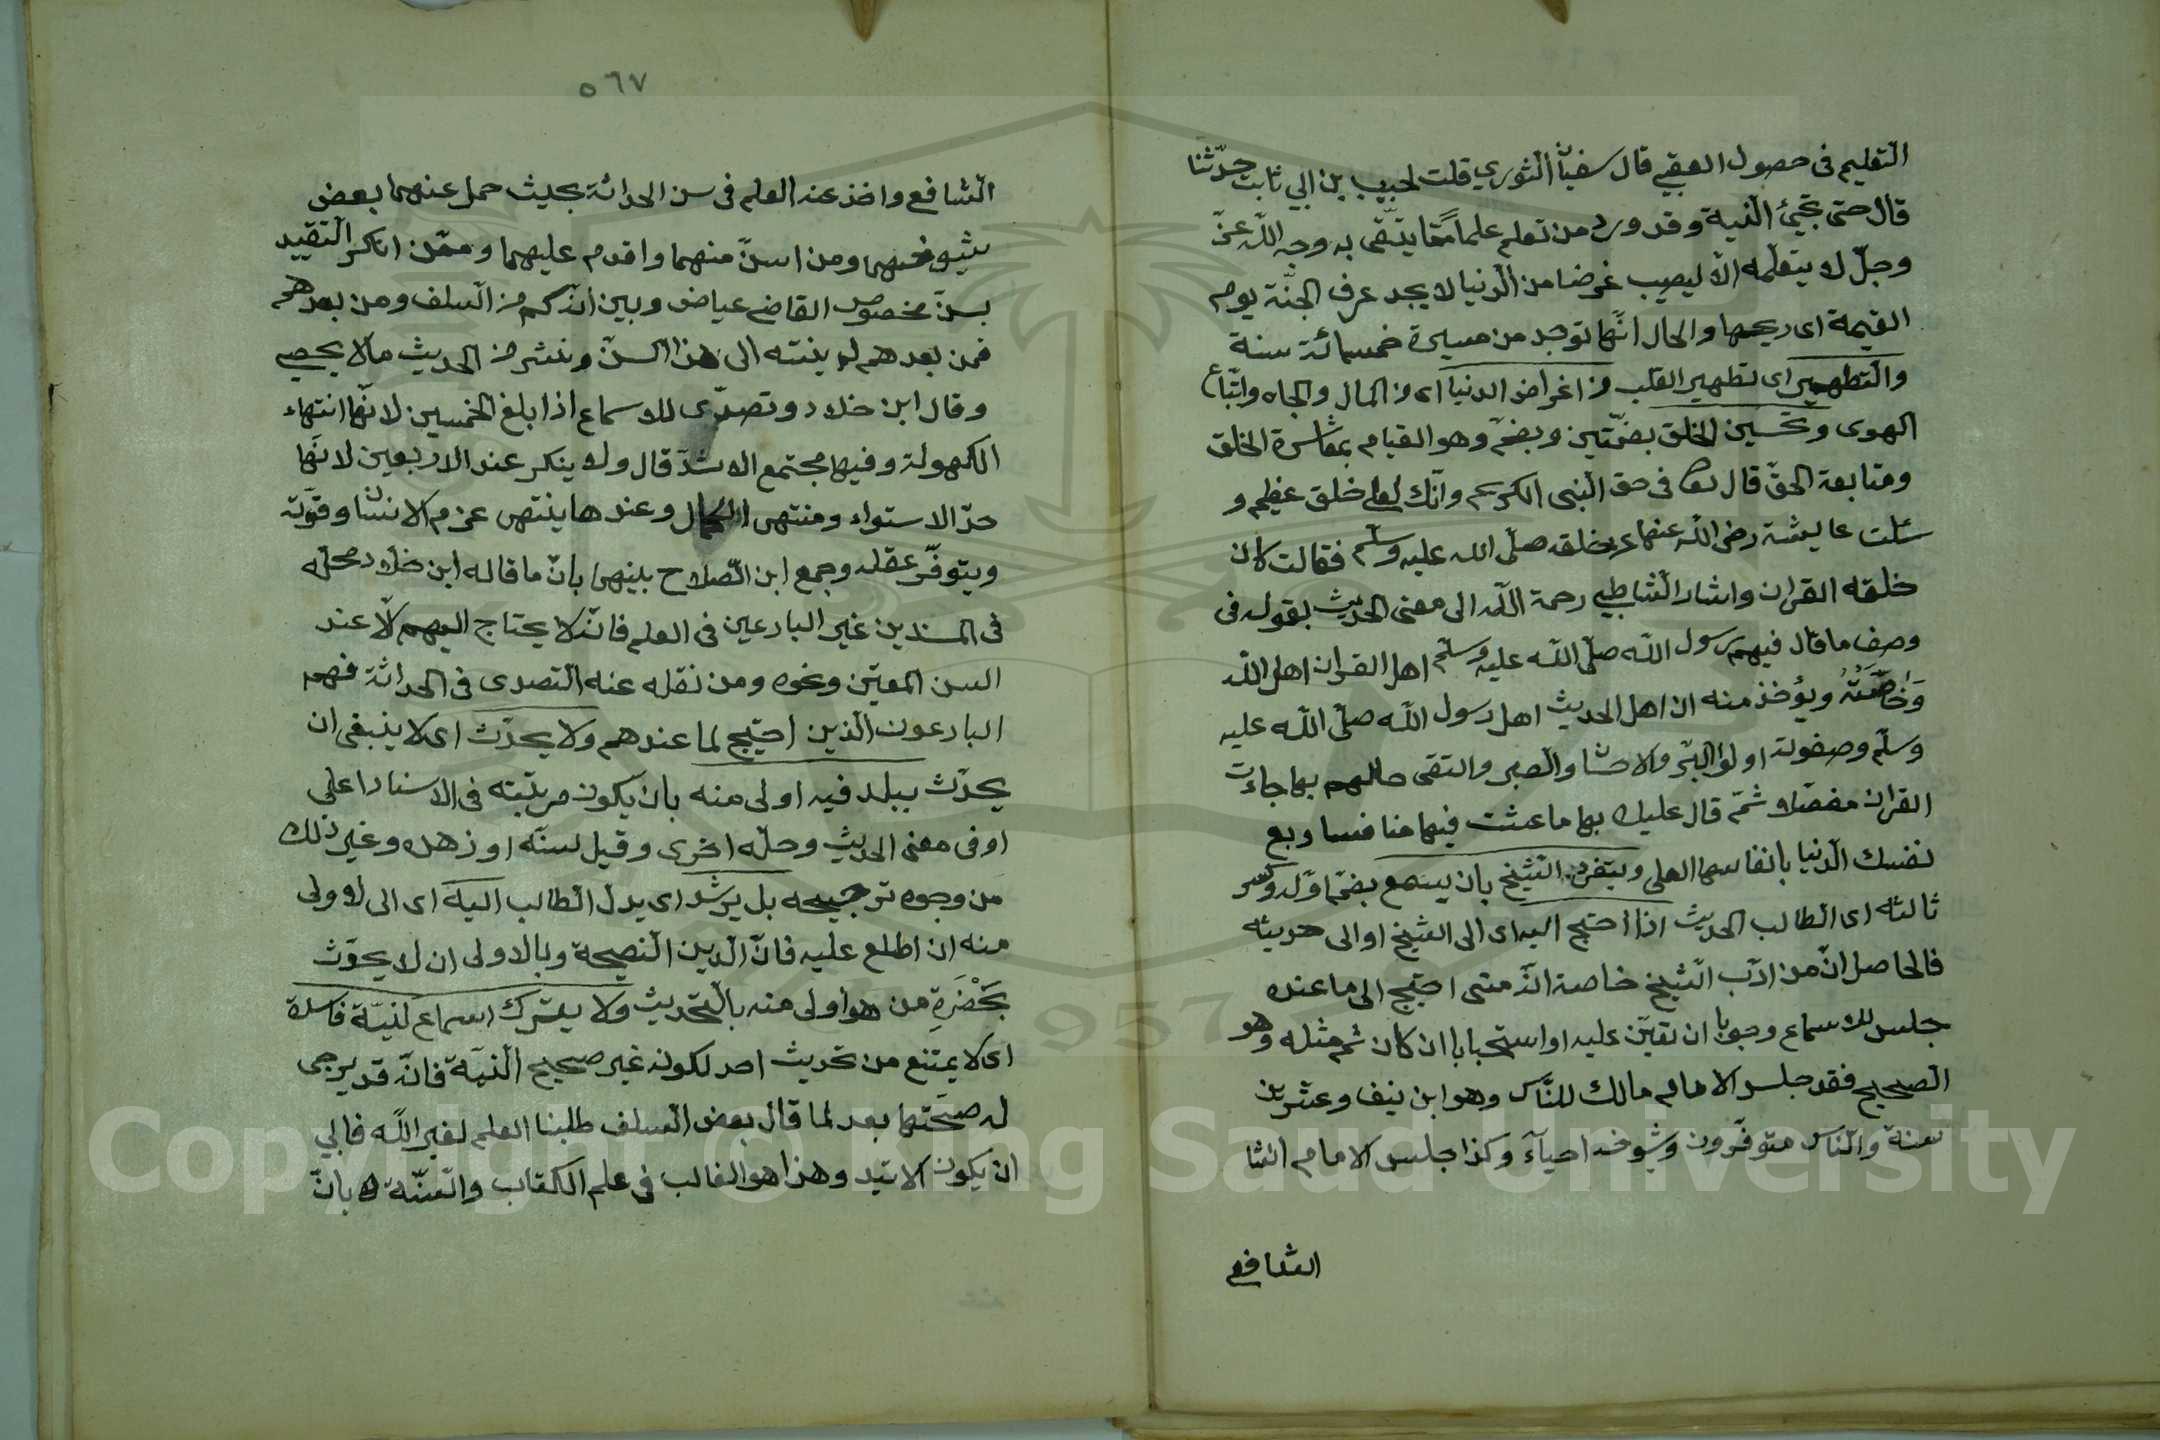 التعليم في حصول العقبي قال سفيان الثوري قلت لحبيب بن ابي ثابت حدّثنا
قال حتى تجيئ النية وقد ورد من تعلم علما ممّا يبتغى به وجه اللّه عزّ
وجلّ لا يتعلّمه الّا ليصيب غرضا من الدنيا لا يجد عرف الجنّة يوم
القيمة اى ريحها والحال انّها توجد من مسيرة خمسمائة سنة
والتطهير اى تطهير القلب من اغراض الدنيا اى من المال والجاه واتّباع
الهوى وتحسين الخلق بضمّتين وبضمّ وهو القيام بمعاشرة الخلق
ومتابعة الحقّ قال تعا فى حق النبى الكريم وانّك لعلى خلق عظيم و
سئلت عايشة رضى اللّه عنها عن خلقه صلّى اللّه عليه وسلّم فقالت كان
خلقه القران واشار الشاطبي رحمة اللّه الى معنى الحديث بقوله فى
وصف ما قال فيهم رسول اللّه صلّى اللّه عليه وسلّم اهل القران اهل اللّه
وَخَاصَّتُهُ ويؤخذ منه ان اهل الحديث اهل رسول اللّه صلّى اللّه عليه
وسلّم وصفوته اولوا البرّ والاحسا والصبر والتقى حالهم بها جاءت
القران مفصّلا ثمّ قال عليك بها ما عشت فيها منافسا وبع
نفسك الدنيا بانفاسها العلى وينفرد الشيخ بان يسمع بضمّ اوّله وكسر
ثالثه اى الطالب الحديث اذا احتيج اليه اى الى الشيخ او الى حديثه
فالحاصل انّ من ادب الشيخ خاصة انّه متى احتيج الى ما عنده
جلس للاسماع وجوبا ان تعيّن عليه او استحبابا ان كان ثم مثله وهو
الصحيح فقد جلس الامام مالك للنّاس وهو ابن نيف وعشرين
سنة والنّاس متوفّرون وشيوخه احيآء وكذا جلس الامام الشا
الشافعي
٥٦٧
الشافع واخذ عنه العلم فى سن الحداثة بحيث حمل عنهما بعض
شيوخهما ومن اسنّ منهما واقدم عليهما وممّن انكر التقييد
بسنّ مخصوص القاضي عياض وبين انّه كم من السلف ومن بعدهم
فمن بعدهم لم ينته الى هذا السنّ ونشر من الحديث ما لا يحصى
وقال ابن خلاد وتصدّى للاسماع اذا بلغ الخمسين لانّها انتهاء
الكهولة وفيها مجتمع الاشدّ قال ولا ينكر عند الاربعين لانّها
حدّ الاستواء ومنتهى الكمال وعندها ينتهى عزم الانسان وقوّته
ويتوفّر عقله وجمع ابن الصّلاح بينهما بانّ ما قاله ابن خلّاد محلّه
فى المسندين غير البارعين فى العلم فانّه لا يحتاج اليهم الّا عند
السن المعيّن ونحوه ومن نقله عنه التصدى فى الحداثة فهم
البارعون الّذين احتيج لما عندهم ولا يحدّث اى لا ينبغى ان
يحدّث ببلد فيه اولى منه بان يكون مرتبته فى الاسناد اعلى
او فى معنى الحديث وحلّه اخرى وقيل لسنّه او زهده وغير ذلك
من وجوه ترجيحه بل يرشد اى يدل الطالب اليه اى الى الاولى
منه ان اطلع عليه فانّ الدين النّصيحة وبالاولى ان لا يحدّث
بحَضْرَةِ من هو اولى منه بالتّحديث ولا يترك اسماع لنيّة فاسدة
اى لا يمتنع من تحديث احد لكونه غير صحيح النيّة فانّه قد يرجى
له صحّتها بعد لما قال بعض السلف طلبنا العلم لغير اللّه فابي
ان يكون الا للّه وهذا هو الغالب فى علم الكتاب والسّنّة بانّ
Copyright © King Saud University
1957